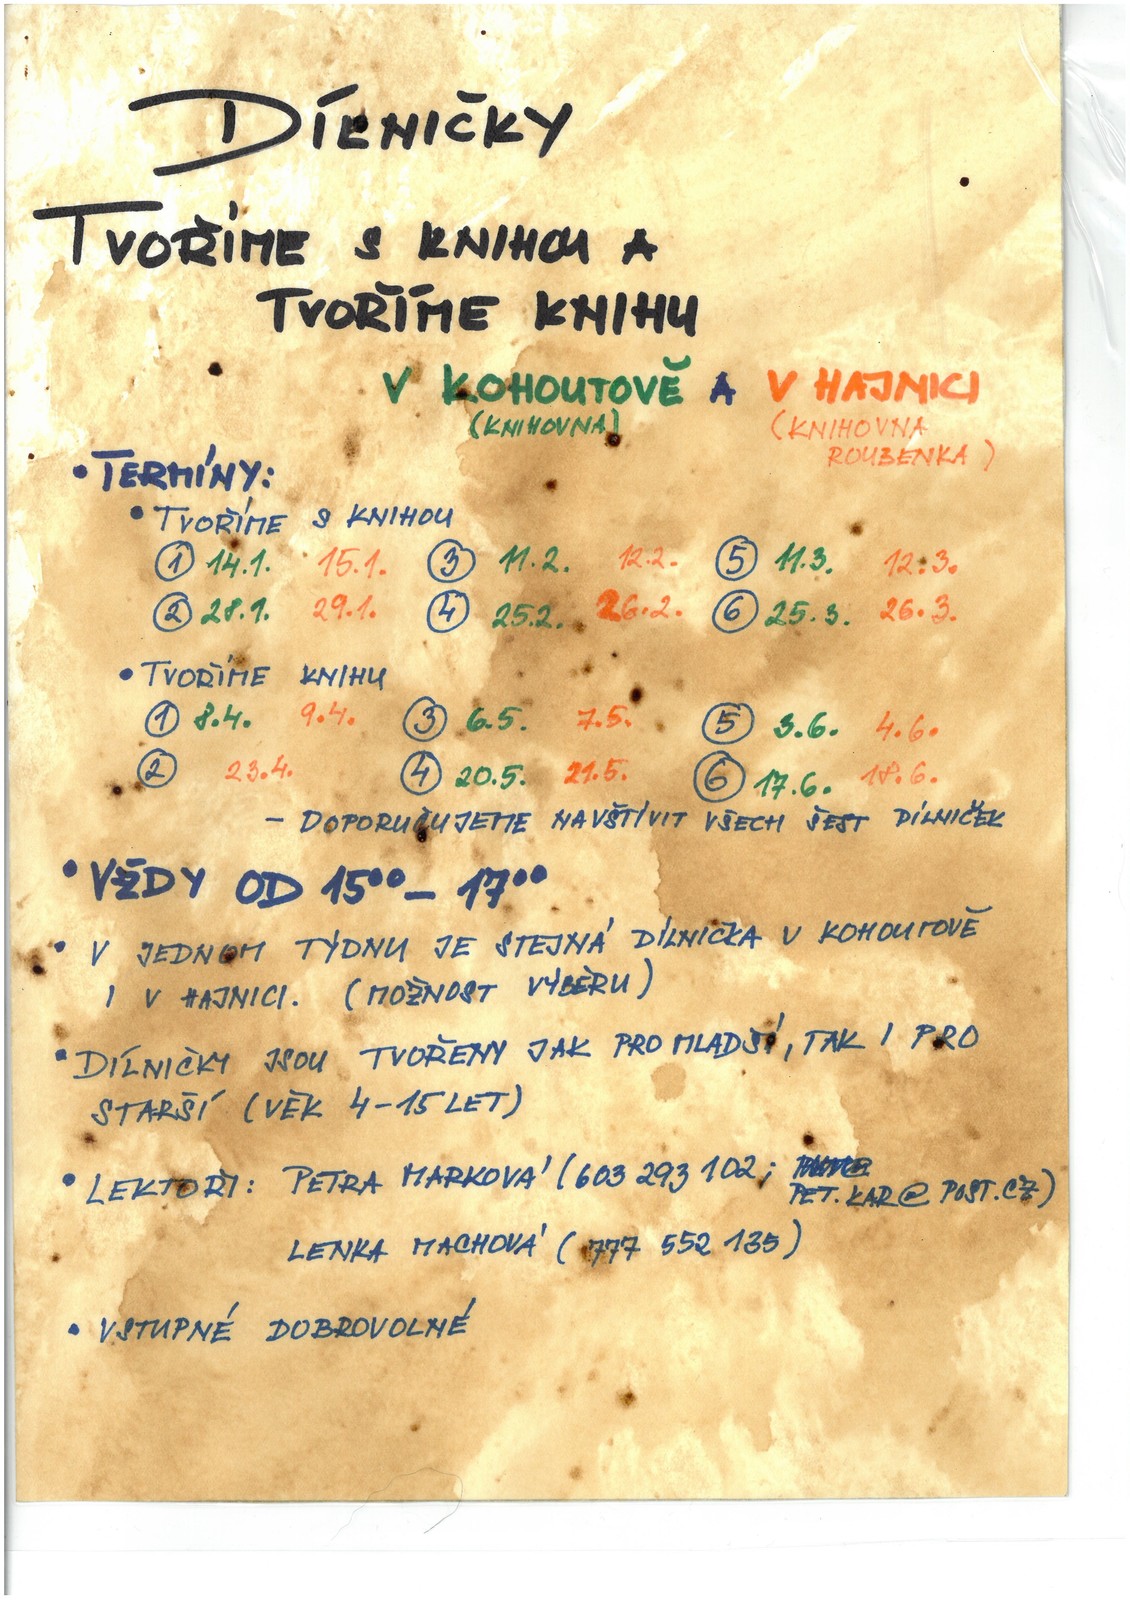 DÍLNIČKY
TVOŘÍME S KNIHOU A
TVOŘÍME KNIHU
V KOHOUTOVĚ A V HAJNICI
(KNIHOVNA) (KNIHOVNA
ROUBENKA)
• TERMÍNY:
• TVOŘÍME S KNIHOU
① 14.1. 15.1. ③ 11.2. 12.2. ⑤ 11.3. 12.3.
② 28.1. 29.1. ④ 25.2. 26.2. ⑥ 25.3. 26.3.
• TVOŘÍME KNIHU
① 8.4. 9.4. ③ 6.5. 7.5. ⑤ 3.6. 4.6.
② 23.4. ④ 20.5. 21.5. ⑥ 17.6. 18.6.
– DOPORUČUJEME NAVŠTÍVIT VŠECH ŠEST DÍLNIČEK
• VŽDY OD 15⁰⁰ – 17⁰⁰
• V JEDNOM TÝDNU JE STEJNÁ DÍLNIČKA V KOHOUTOVĚ
I V HAJNICI. (MOŽNOST VÝBĚRU)
• DÍLNIČKY JSOU TVOŘENY JAK PRO MLADŠÍ, TAK I PRO
STARŠÍ (VĚK 4–15 LET)
• LEKTOŘI: PETRA MARKOVÁ (603 293 102;
PET.KAR@POST.CZ)
LENKA MACHOVÁ (777 552 135)
• VSTUPNÉ DOBROVOLNÉ